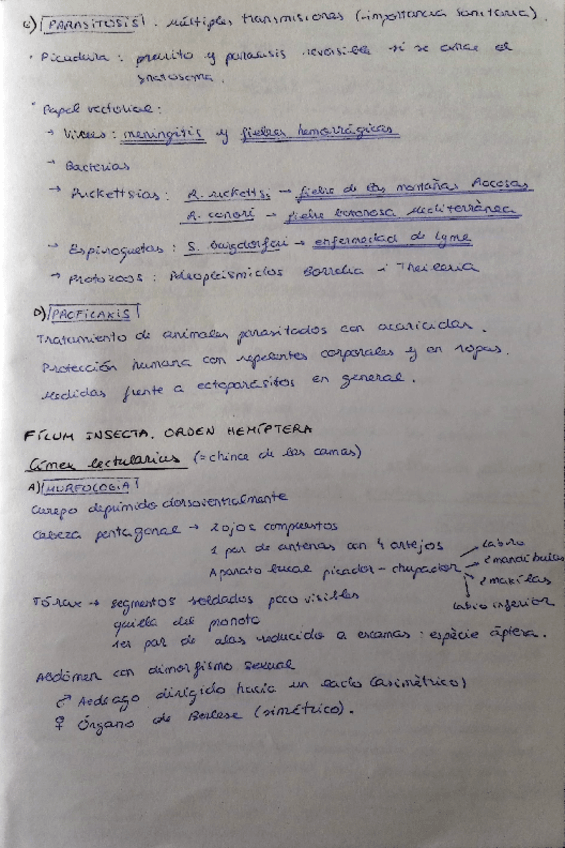 C) PARASITOSIS. Múltiples transmisiones (importancia sanitaria).
· Picadura: prurito y parálisis reversible si se extrae el
gnatosoma.
· Papel vectorial:
→ Virus: meningitis y fiebres hemorrágicas
→ Bacterias
→ Rickettsias: R. rickettsi → fiebre de las montañas Rocosas
R. conori → fiebre botonosa Mediterránea
→ Espiroquetas: S. burgdorferi → enfermedad de Lyme
→ Protozoos: Piroplasmidos Borrelia - Theileria
D) PROFILAXIS
Tratamiento de animales parasitados con acaricidas.
Protección humana con repelentes corporales y en ropas.
Medidas frente a ectoparásitos en general.
FÍLUM INSECTA. ORDEN HEMÍPTERA
Cimex lectularius (= chince de las camas)
A) MORFOLOGÍA
Cuerpo deprimido dorsoventralmente
Cabeza pentagonal → 2 ojos compuestos
1 par de antenas con 4 artejos
Aparato bucal picador-chupador → labro
2 mandíbulas
2 maxilas
labio inferior
Tórax → segmentos soldados poco visibles
quilla del pronoto
1er par de alas reducido a escamas: espècie áptera.
Abdómen con dimorfismo sexual
♂ Aedeago dirigido hacia un lado (asimétrico)
♀ Órgano de Berlese (simétrico).